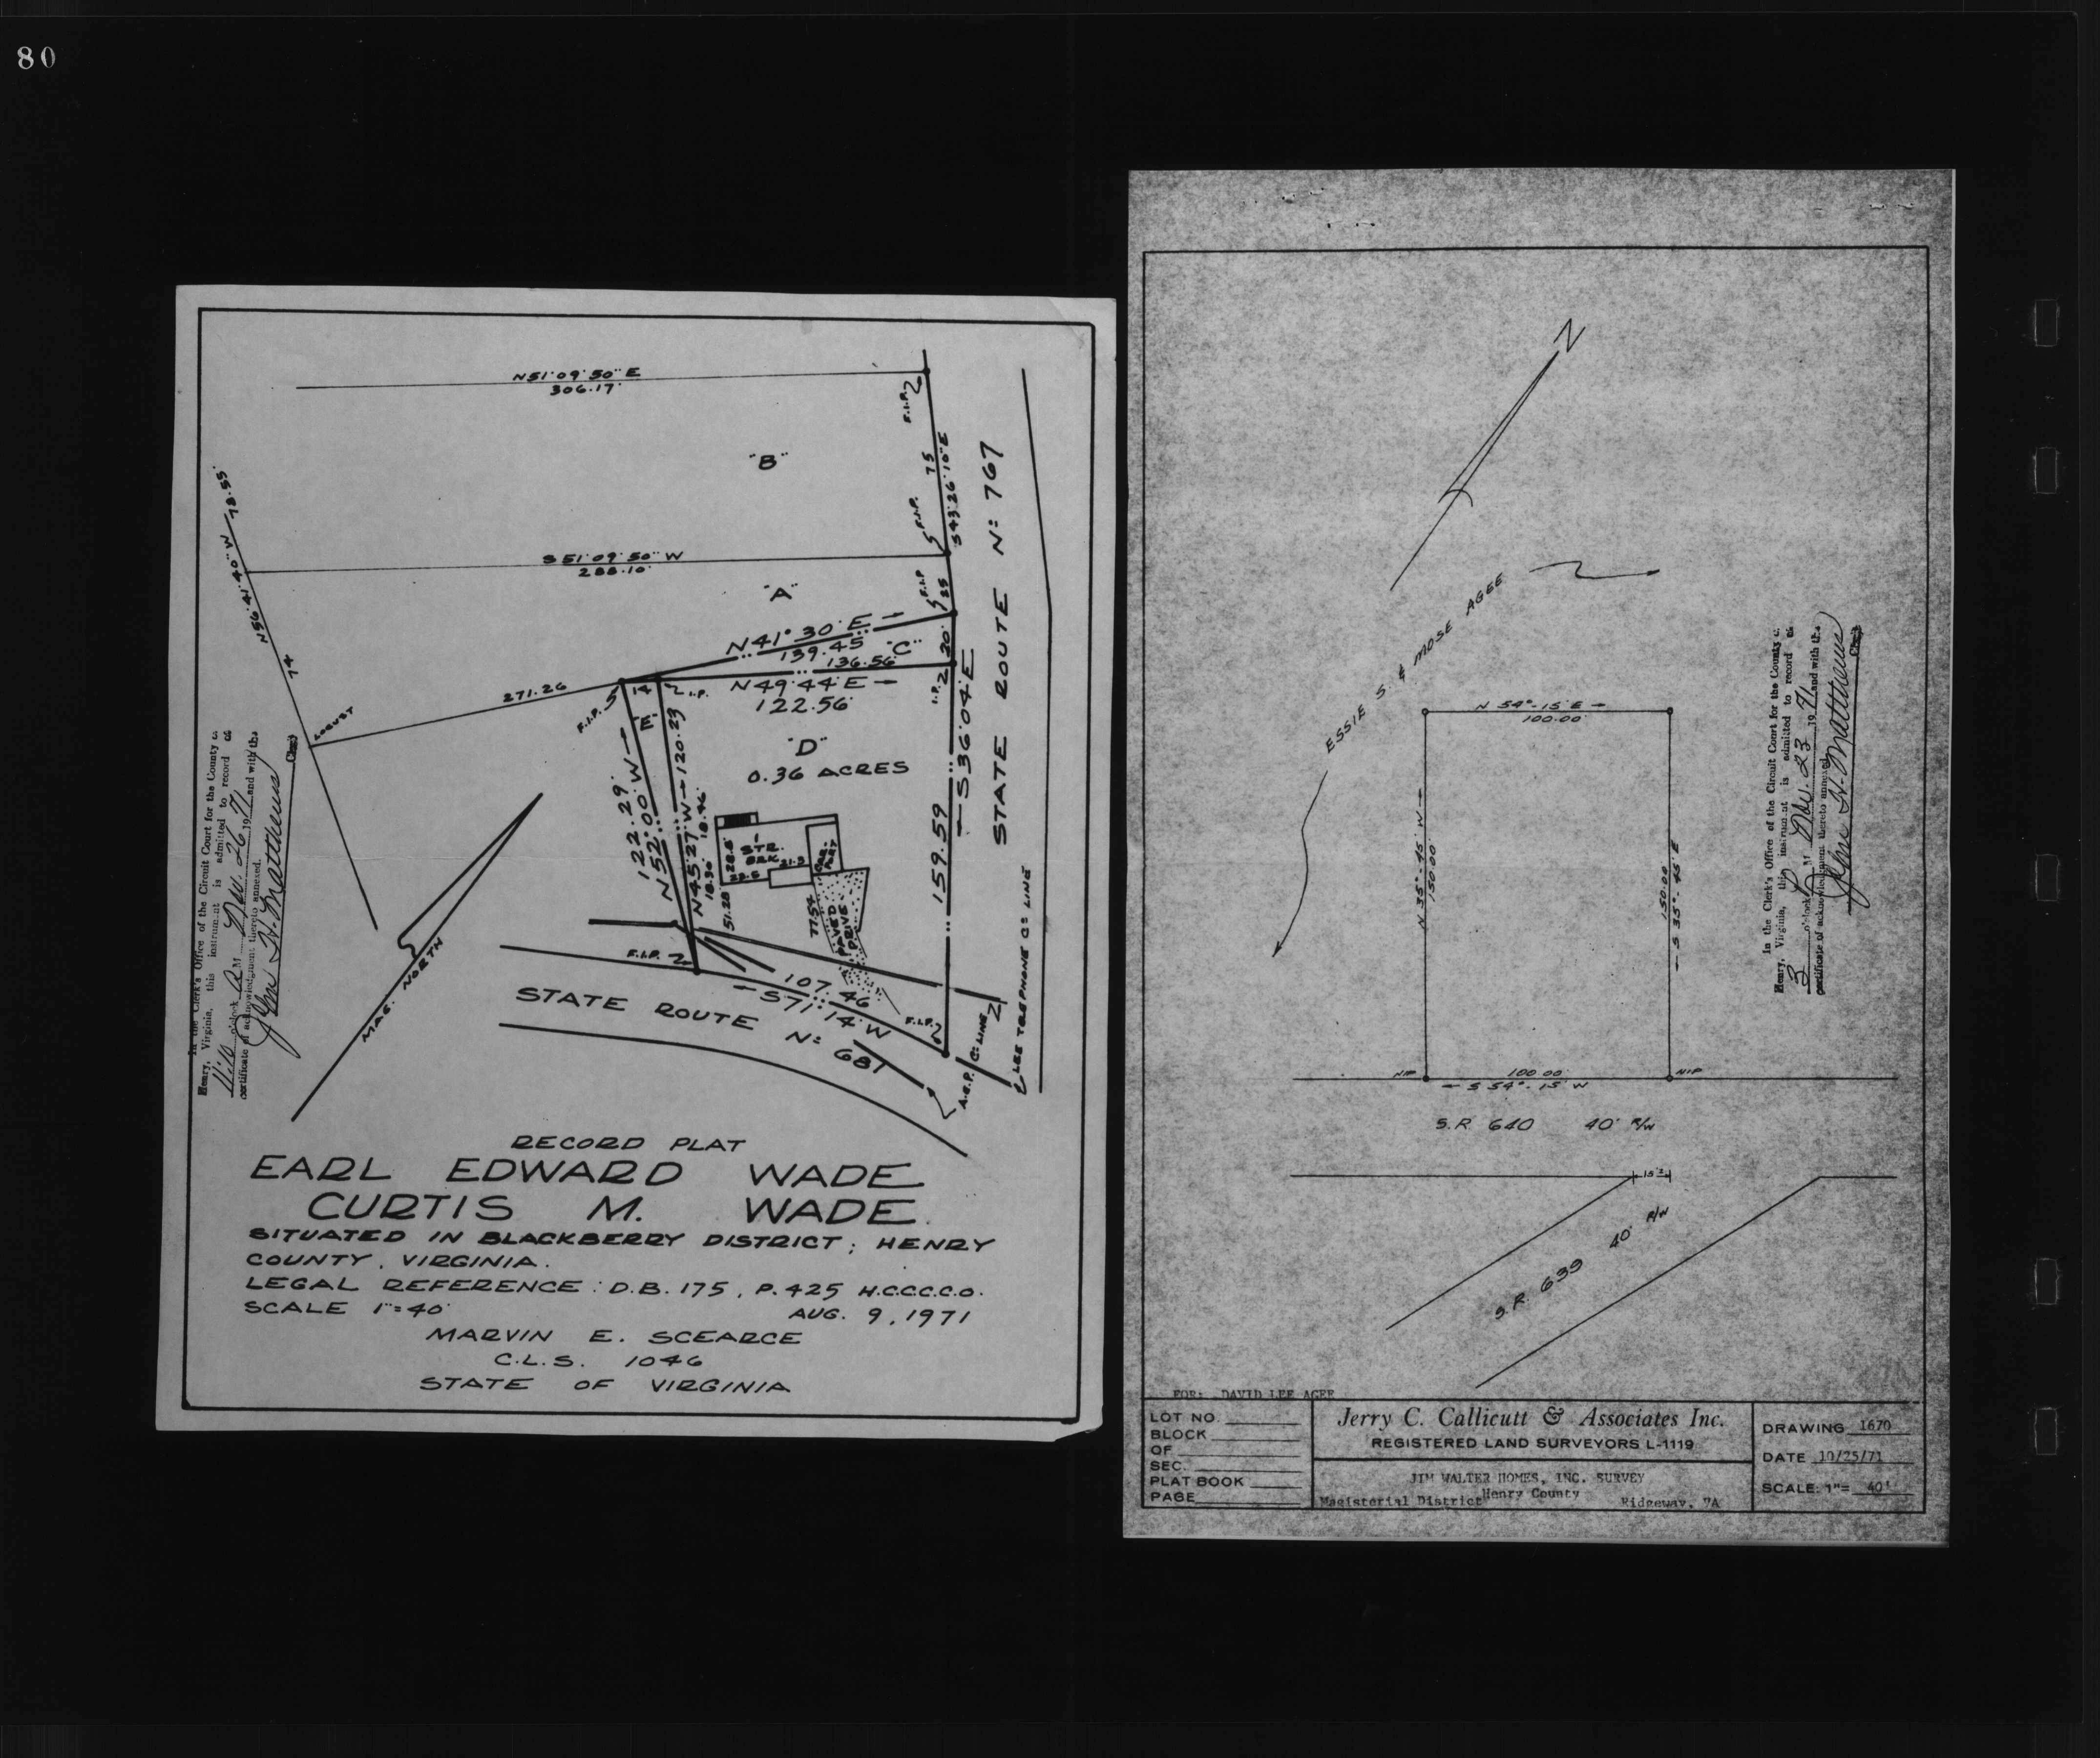 80
N51°09'50" E
306.17'
F.I.P.
"B"
75
S43°26'10"E
F.I.P.
STATE ROUTE Nº 767
78.55'
N56°41'40" W
74
S51°09'50" W
288.10'
"A"
F.I.P.
25
N41°30' E
139.45
"C"
20
136.56'
N49°44'E
122.56'
I.P.
S36°04'E
271.26
14
I.P.
F.I.P.
"E"
LOCUST
"D"
0.36 ACRES
122.29'
N52°00'W
120.23
N45°27'W
18.46
18.30
1-
STR.
BRK.
28.5
29.5
21.3
CAR-
PORT
51.28
77.54
PAVED
DRIVE
159.59
F.I.P.
107.46
S71°14'W
F.I.P.
STATE ROUTE Nº 687
LEE TELEPHONE Cº LINE
A.E.P. Cº LINE
MAG. NORTH
In the Clerk's Office of the Circuit Court for the County of
Henry, Virginia, this instrument is admitted to record at
11:10 o'clock A M Nov. 26 1971 and with the
certificate of acknowledgment thereto annexed.
John H. Matthews Clerk
RECORD PLAT
EARL EDWARD WADE
CURTIS M. WADE
SITUATED IN BLACKBERRY DISTRICT; HENRY
COUNTY, VIRGINIA.
LEGAL REFERENCE: D.B. 175, P. 425 H.C.C.C.O.
SCALE 1"=40'
AUG. 9, 1971
MARVIN E. SCEARCE
C.L.S. 1046
STATE OF VIRGINIA
N
ESSIE S. & MOSE AGEE
N 54°-15'E
100.00'
N 35°-45' W
150.00'
150.00
S 35°-45'E
NIP
100.00
NIP
S 54°-15' W
S.R. 640 40' R/W
15'±
S.R. 639 40' R/W
In the Clerk's Office of the Circuit Court for the County of
Henry, Virginia, this instrument is admitted to record at
3 o'clock P M Nov. 23 1971 and with the
certificate of acknowledgment thereto annexed
John H. Matthews
Clerk
FOR: DAVID LEE AGEE
LOT NO.
BLOCK
OF
SEC.
PLAT BOOK
PAGE
Jerry C. Callicutt & Associates Inc.
REGISTERED LAND SURVEYORS L-1119
JIM WALTER HOMES, INC. SURVEY
Magisterial District Henry County Ridgeway, VA
DRAWING 1670
DATE 10/25/71
SCALE: 1"= 40'